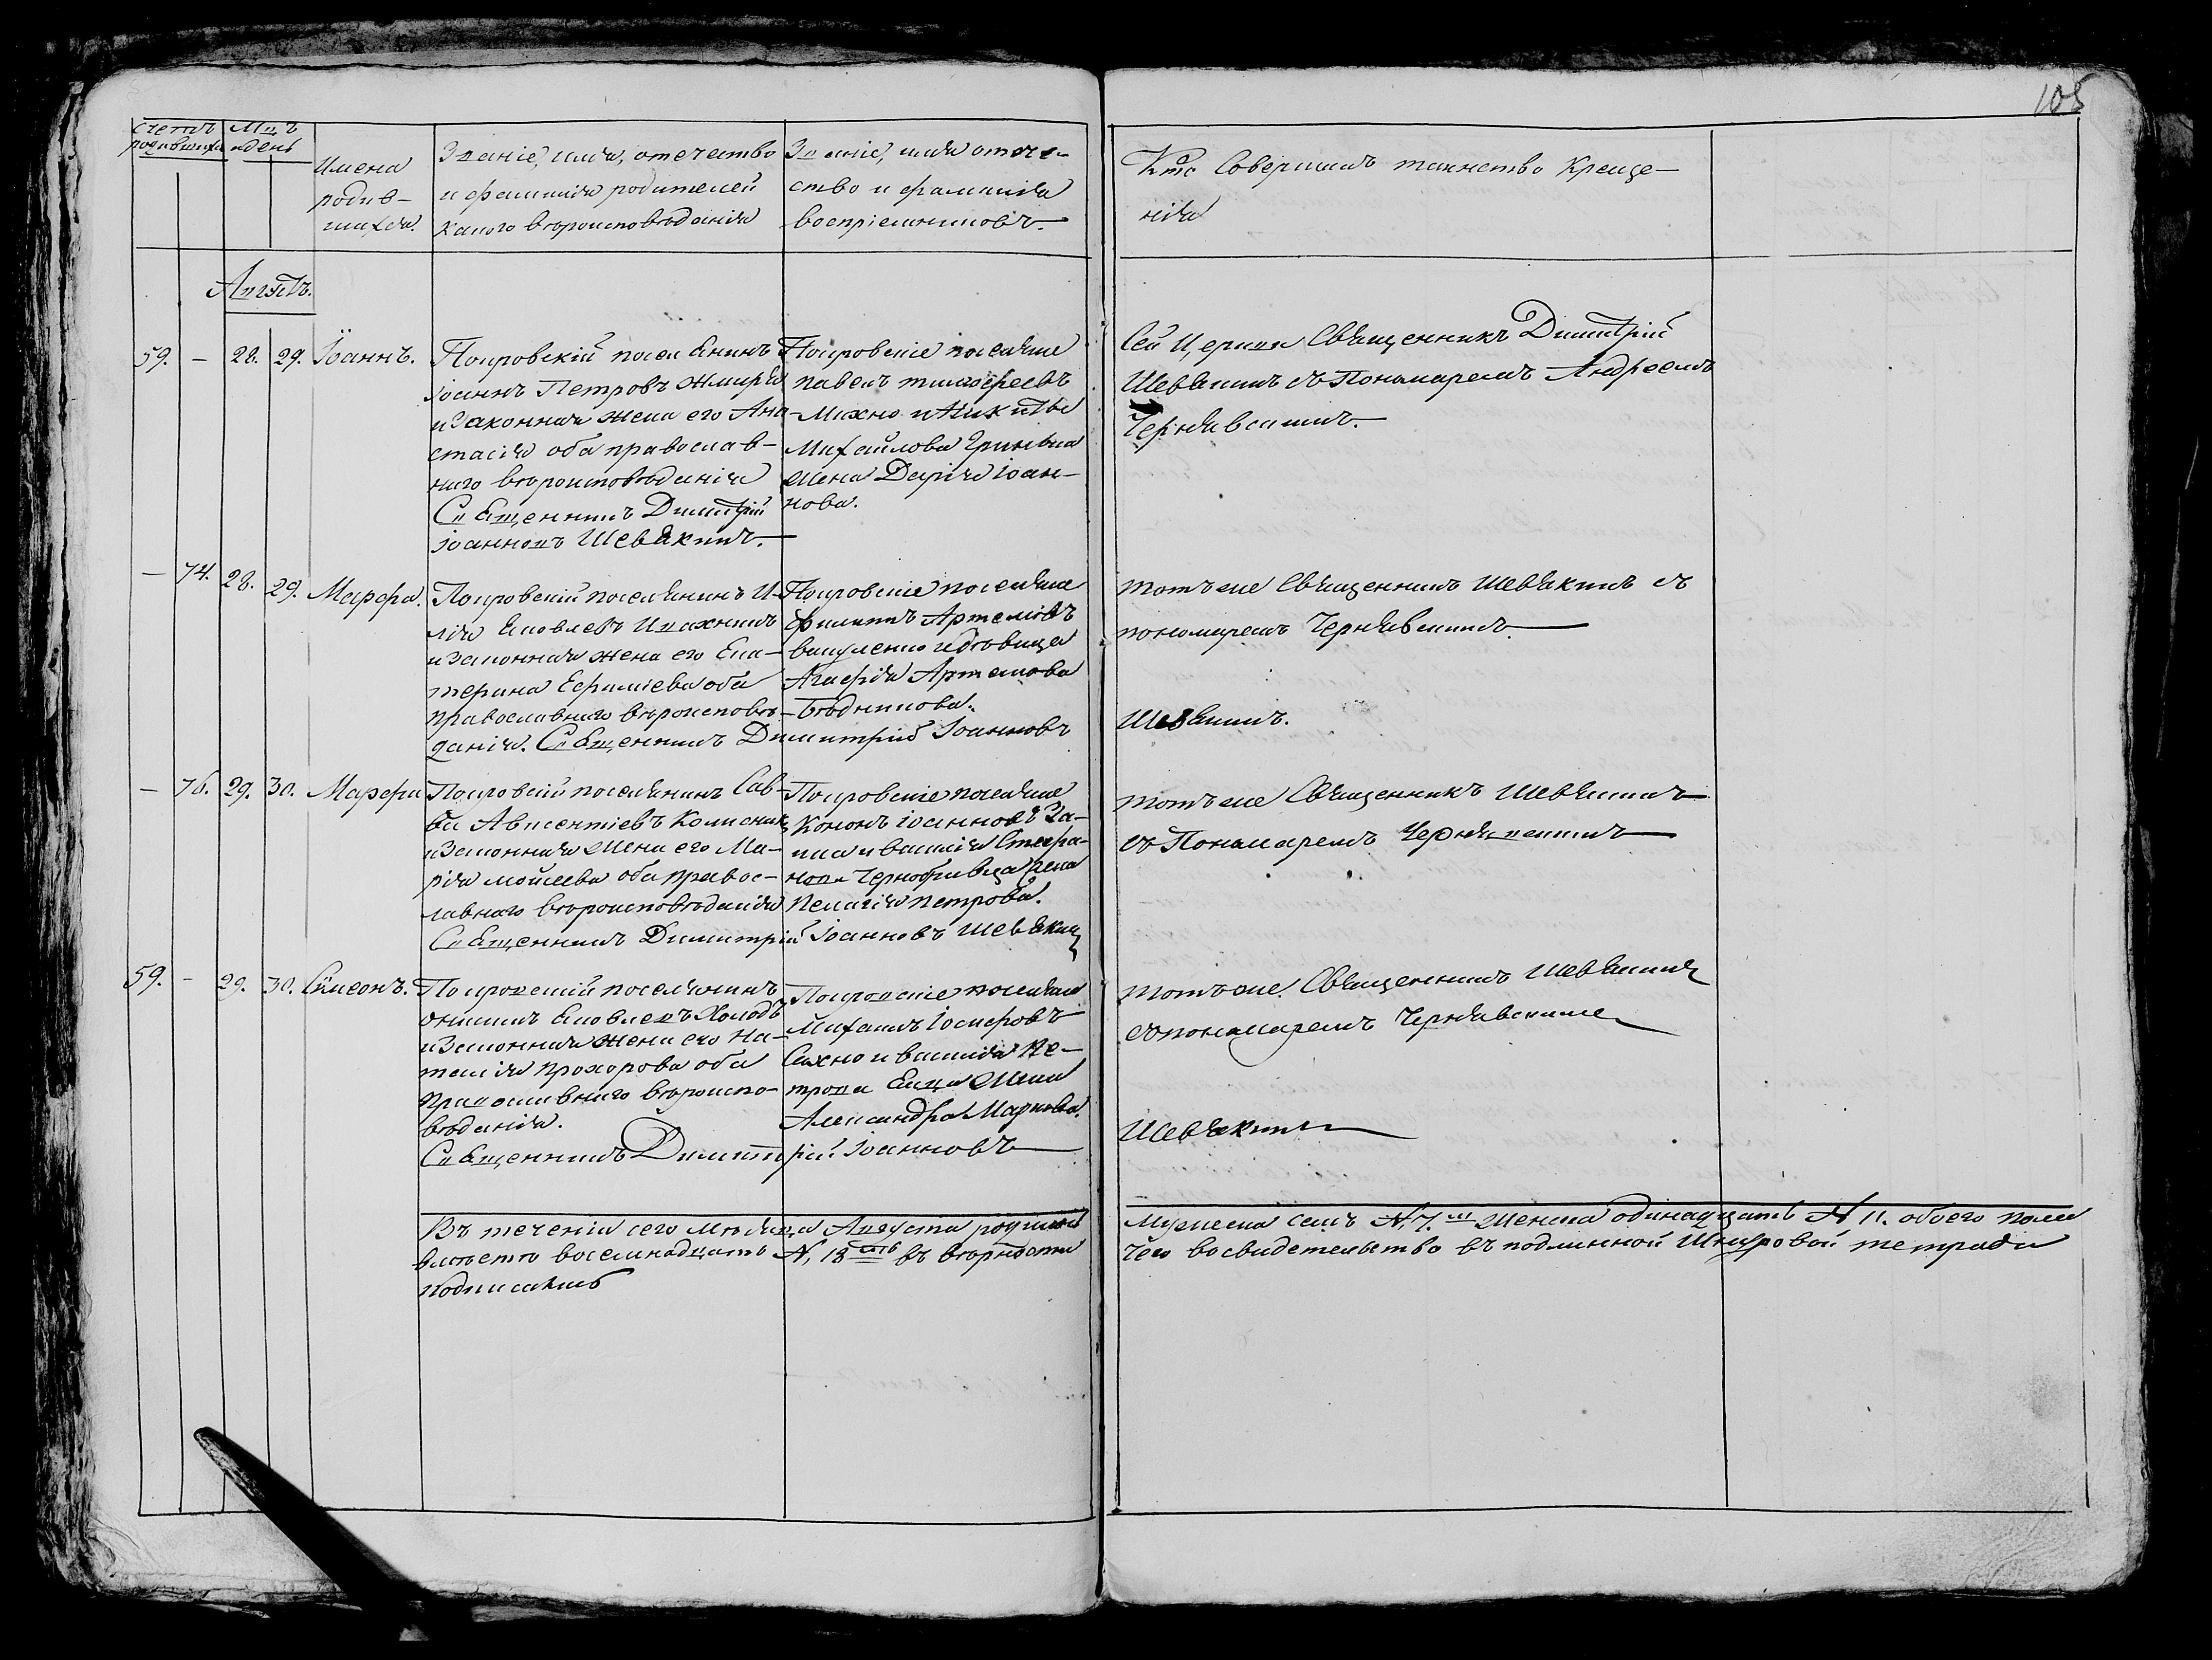 105
Счетъ родившихся
Мцъ и день
Имена
родив-
шихся.
Званіе, имя, отечество
и фамилія родителей
какого вѣроисповѣданія
Званіе, имя отече-
ство и фамилія
воспріемниковъ.
Кто Совершалъ таинство Креще-
нія
Августъ.
59. — 28. 29. Іоаннъ.
Покровскій поселянинъ
Іоаннъ Петровъ Жмиря
и Законная жена его Ана-
стасія оба православ-
наго вѣроисповѣданія
Священникъ Димитрій
Іоанновъ Шевякинъ.
Покровскіе поселяне
Павелъ Тимофеевъ
Махно и Никиты
Михайлова
жена Дарія Іоан-
нова.
Сей Церкви Священникъ Димитрій
Шевякинъ съ Пономаремъ Андреемъ
Чернявскимъ.
— 74. 28. 29. Марфа.
Покровскій поселянинъ И-
лія Яковлевъ
и Законная жена его Ека-
терина Ефиміева оба
православнаго вѣроисповѣ-
данія. Священникъ Димитрій Іоанновъ
Покровскіе поселяне
Филиппъ Артемовъ
Вакуленко и дѣвица
Агафія Артемова
Бѣдникова.
тотъ же Священникъ Шевякинъ съ
пономаремъ Чернявскимъ.
Шевякинъ.
— 76. 29. 30. Марфа
Покровскій поселянинъ Сав-
ва Авксентіевъ Колисник
и Законная Жена его Ма-
рія Моисеева оба правос-
лавнаго вѣроисповѣданія
Священникъ Димитрій Іоанновъ Шевякин
Покровскіе поселяне
Кононъ Іоанновъ За-
ика и Василія Стефа-
нова Чернобривца жена
Пелагія Петрова.
тотъ же Священникъ Шевякинъ
съ Пономаремъ Чернявскимъ
59. — 29. 30. Симеонъ.
Покровскій поселянинъ
Онисимъ Яковлевъ Холодъ
и Законная жена его На-
талія Прохорова оба
Православнаго вѣроиспо-
вѣданія.
Священникъ Димитрій Іоанновъ
Покровскіе поселяне
Михаилъ Іосифовъ
Сахно и Василія Пе-
трова жена
Александра Маркова.
тотъ же Священникъ Шевякинъ
съ пономаремъ Чернявскимъ
Шевякинъ
Въ теченіи сего Мѣсяца Августа родилось Мужеска семь N, 7. Женска одинадцать N 11. обоего пола
вмѣстѣ восемнадцать N, 18 въ вѣрности чего во свидетельство въ подлинной Шнуровой тетради
подписались